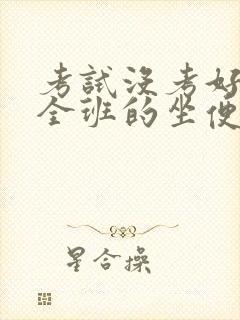 考試沒考好
全班的坐便
星合操